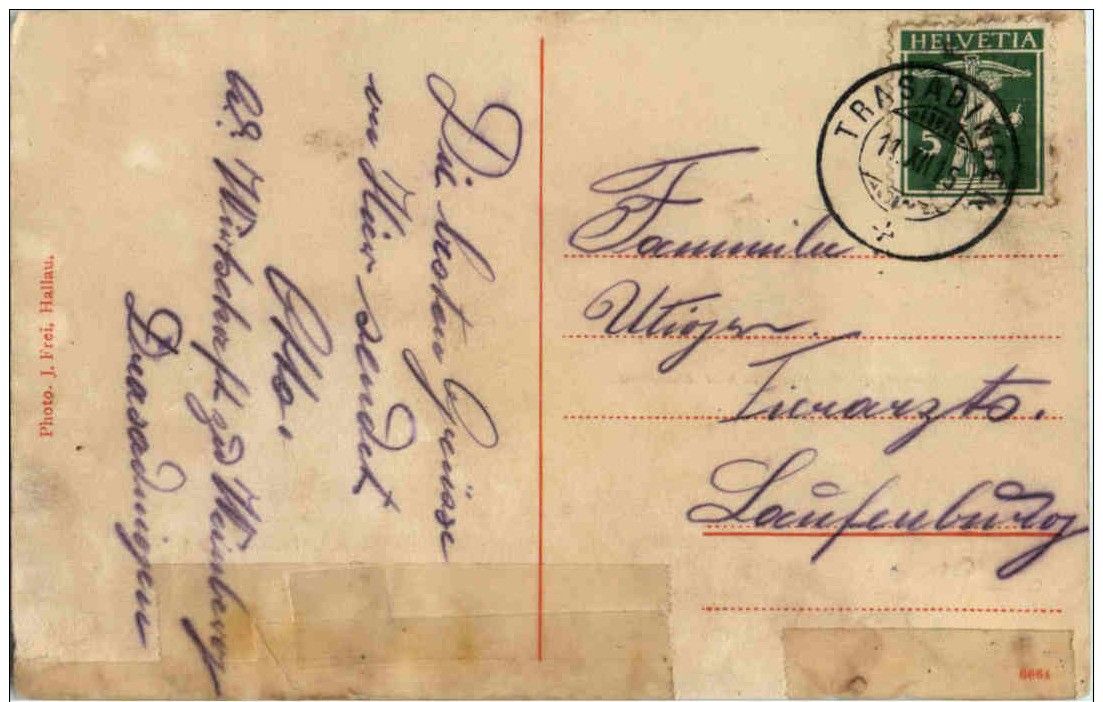 Die besten Grüsse
von Hier sendet
Otto.
bei Wirtschaft zu Weinberg
Drasadingen
Photo. J. Frei, Hallau.
HELVETIA
5
TRASADINGEN
11.XII.15
Fammilie
Utiger.
Tierarzts.
Laufenburg
6661